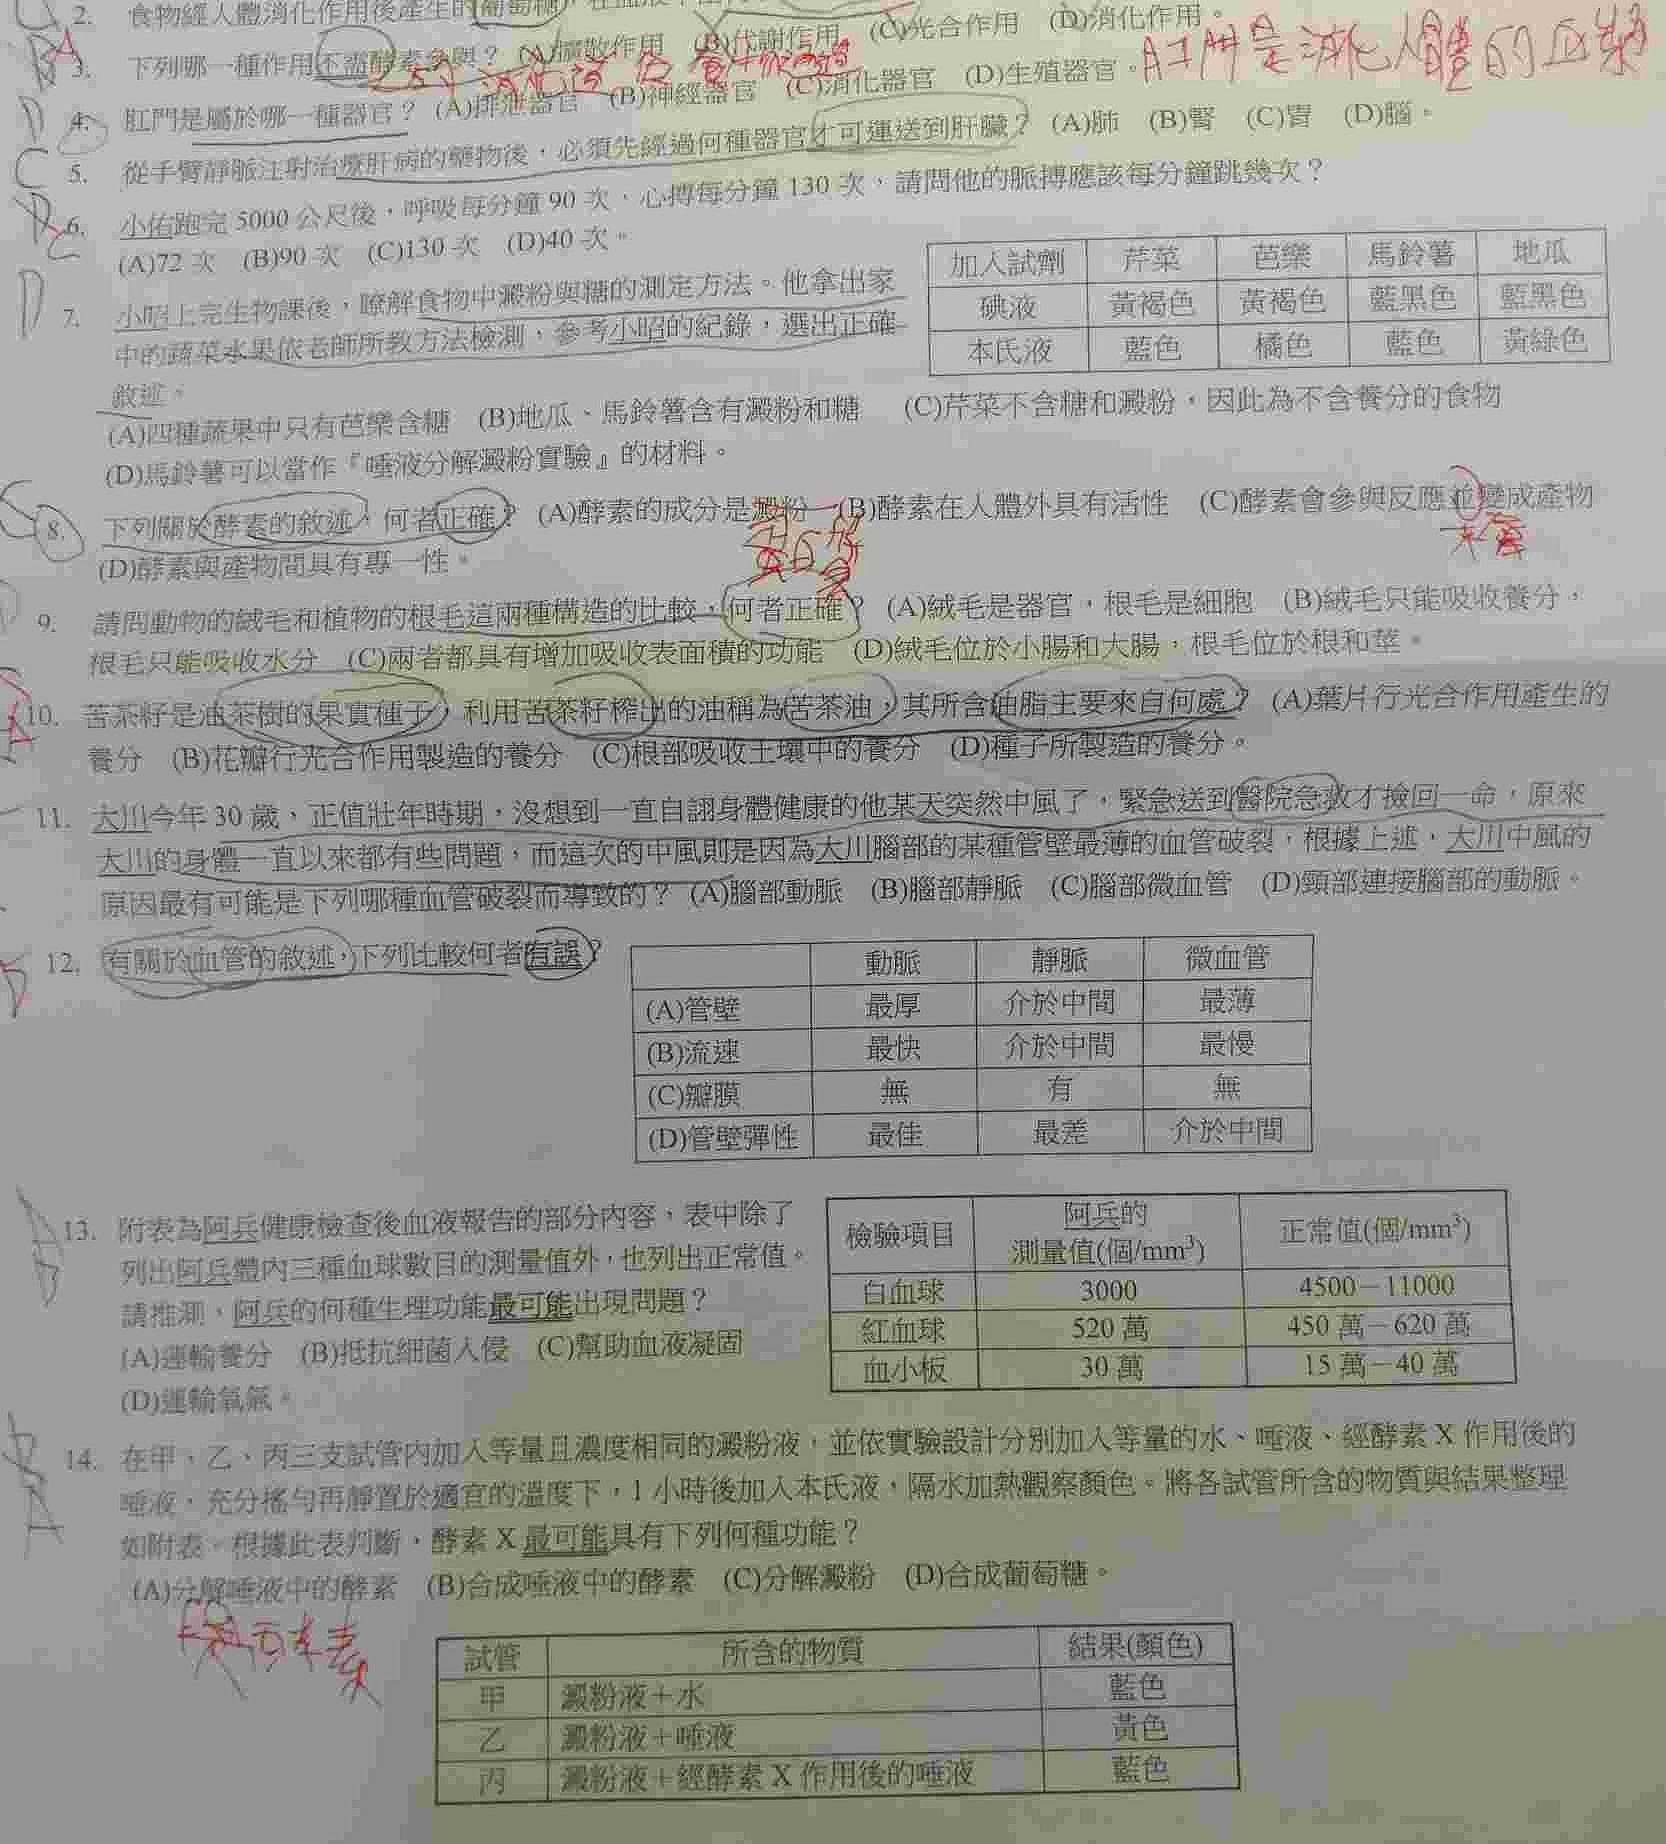 2. 食物經人體消化作用後產生的葡萄糖，在血液中
3. 下列哪一種作用不需酵素參與？ (A)擴散作用 (B)代謝作用 (C)光合作用 (D)消化作用。
肛門是消化人體的
4. 肛門是屬於哪一種器官？ (A)排泄器官 (B)神經器官 (C)消化器官 (D)生殖器官。
5. 從手臂靜脈注射治療肝病的藥物後，必須先經過何種器官才可運送到肝臟？ (A)肺 (B)腎 (C)胃 (D)腦。
6. 小佑跑完 5000 公尺後，呼吸每分鐘 90 次，心搏每分鐘 130 次，請問他的脈搏應該每分鐘跳幾次？
(A)72 次 (B)90 次 (C)130 次 (D)40 次。
7. 小昭上完生物課後，瞭解食物中澱粉與糖的測定方法。他拿出家
中的蔬菜水果依老師所教方法檢測，參考小昭的紀錄，選出正確
敘述。
加入試劑 芹菜 芭樂 馬鈴薯 地瓜
碘液 黃褐色 黃褐色 藍黑色 藍黑色
本氏液 藍色 橘色 藍色 黃綠色
(A)四種蔬果中只有芭樂含糖 (B)地瓜、馬鈴薯含有澱粉和糖 (C)芹菜不含糖和澱粉，因此為不含養分的食物
(D)馬鈴薯可以當作『唾液分解澱粉實驗』的材料。
8. 下列關於酵素的敘述，何者正確？ (A)酵素的成分是澱粉 (B)酵素在人體外具有活性 (C)酵素會參與反應並變成產物
蛋白質
不會
(D)酵素與產物間具有專一性。
9. 請問動物的絨毛和植物的根毛這兩種構造的比較，何者正確？ (A)絨毛是器官，根毛是細胞 (B)絨毛只能吸收養分，
根毛只能吸收水分 (C)兩者都具有增加吸收表面積的功能 (D)絨毛位於小腸和大腸，根毛位於根和莖。
10. 苦茶籽是油茶樹的果實種子，利用苦茶籽榨出的油稱為苦茶油，其所含油脂主要來自何處？ (A)葉片行光合作用產生的
養分 (B)花瓣行光合作用製造的養分 (C)根部吸收土壤中的養分 (D)種子所製造的養分。
11. 大川今年 30 歲，正值壯年時期，沒想到一直自詡身體健康的他某天突然中風了，緊急送到醫院急救才撿回一命，原來
大川的身體一直以來都有些問題，而這次的中風則是因為大川腦部的某種管壁最薄的血管破裂，根據上述，大川中風的
原因最有可能是下列哪種血管破裂而導致的？ (A)腦部動脈 (B)腦部靜脈 (C)腦部微血管 (D)頸部連接腦部的動脈。
12. 有關於血管的敘述，下列比較何者有誤？
動脈 靜脈 微血管
(A)管壁 最厚 介於中間 最薄
(B)流速 最快 介於中間 最慢
(C)瓣膜 無 有 無
(D)管壁彈性 最佳 最差 介於中間
13. 附表為阿兵健康檢查後血液報告的部分內容，表中除了
列出阿兵體內三種血球數目的測量值外，也列出正常值。
請推測，阿兵的何種生理功能最可能出現問題？
(A)運輸養分 (B)抵抗細菌入侵 (C)幫助血液凝固
(D)運輸氧氣。
檢驗項目 阿兵的測量值(個/mm³) 正常值(個/mm³)
白血球 3000 4500－11000
紅血球 520 萬 450 萬－620 萬
血小板 30 萬 15 萬－40 萬
14. 在甲、乙、丙三支試管內加入等量且濃度相同的澱粉液，並依實驗設計分別加入等量的水、唾液、經酵素 X 作用後的
唾液，充分搖勻再靜置於適宜的溫度下，1 小時後加入本氏液，隔水加熱觀察顏色。將各試管所含的物質與結果整理
如附表。根據此表判斷，酵素 X 最可能具有下列何種功能？
(A)分解唾液中的酵素 (B)合成唾液中的酵素 (C)分解澱粉 (D)合成葡萄糖。
試管 所含的物質 結果(顏色)
甲 澱粉液＋水 藍色
乙 澱粉液＋唾液 黃色
丙 澱粉液＋經酵素 X 作用後的唾液 藍色